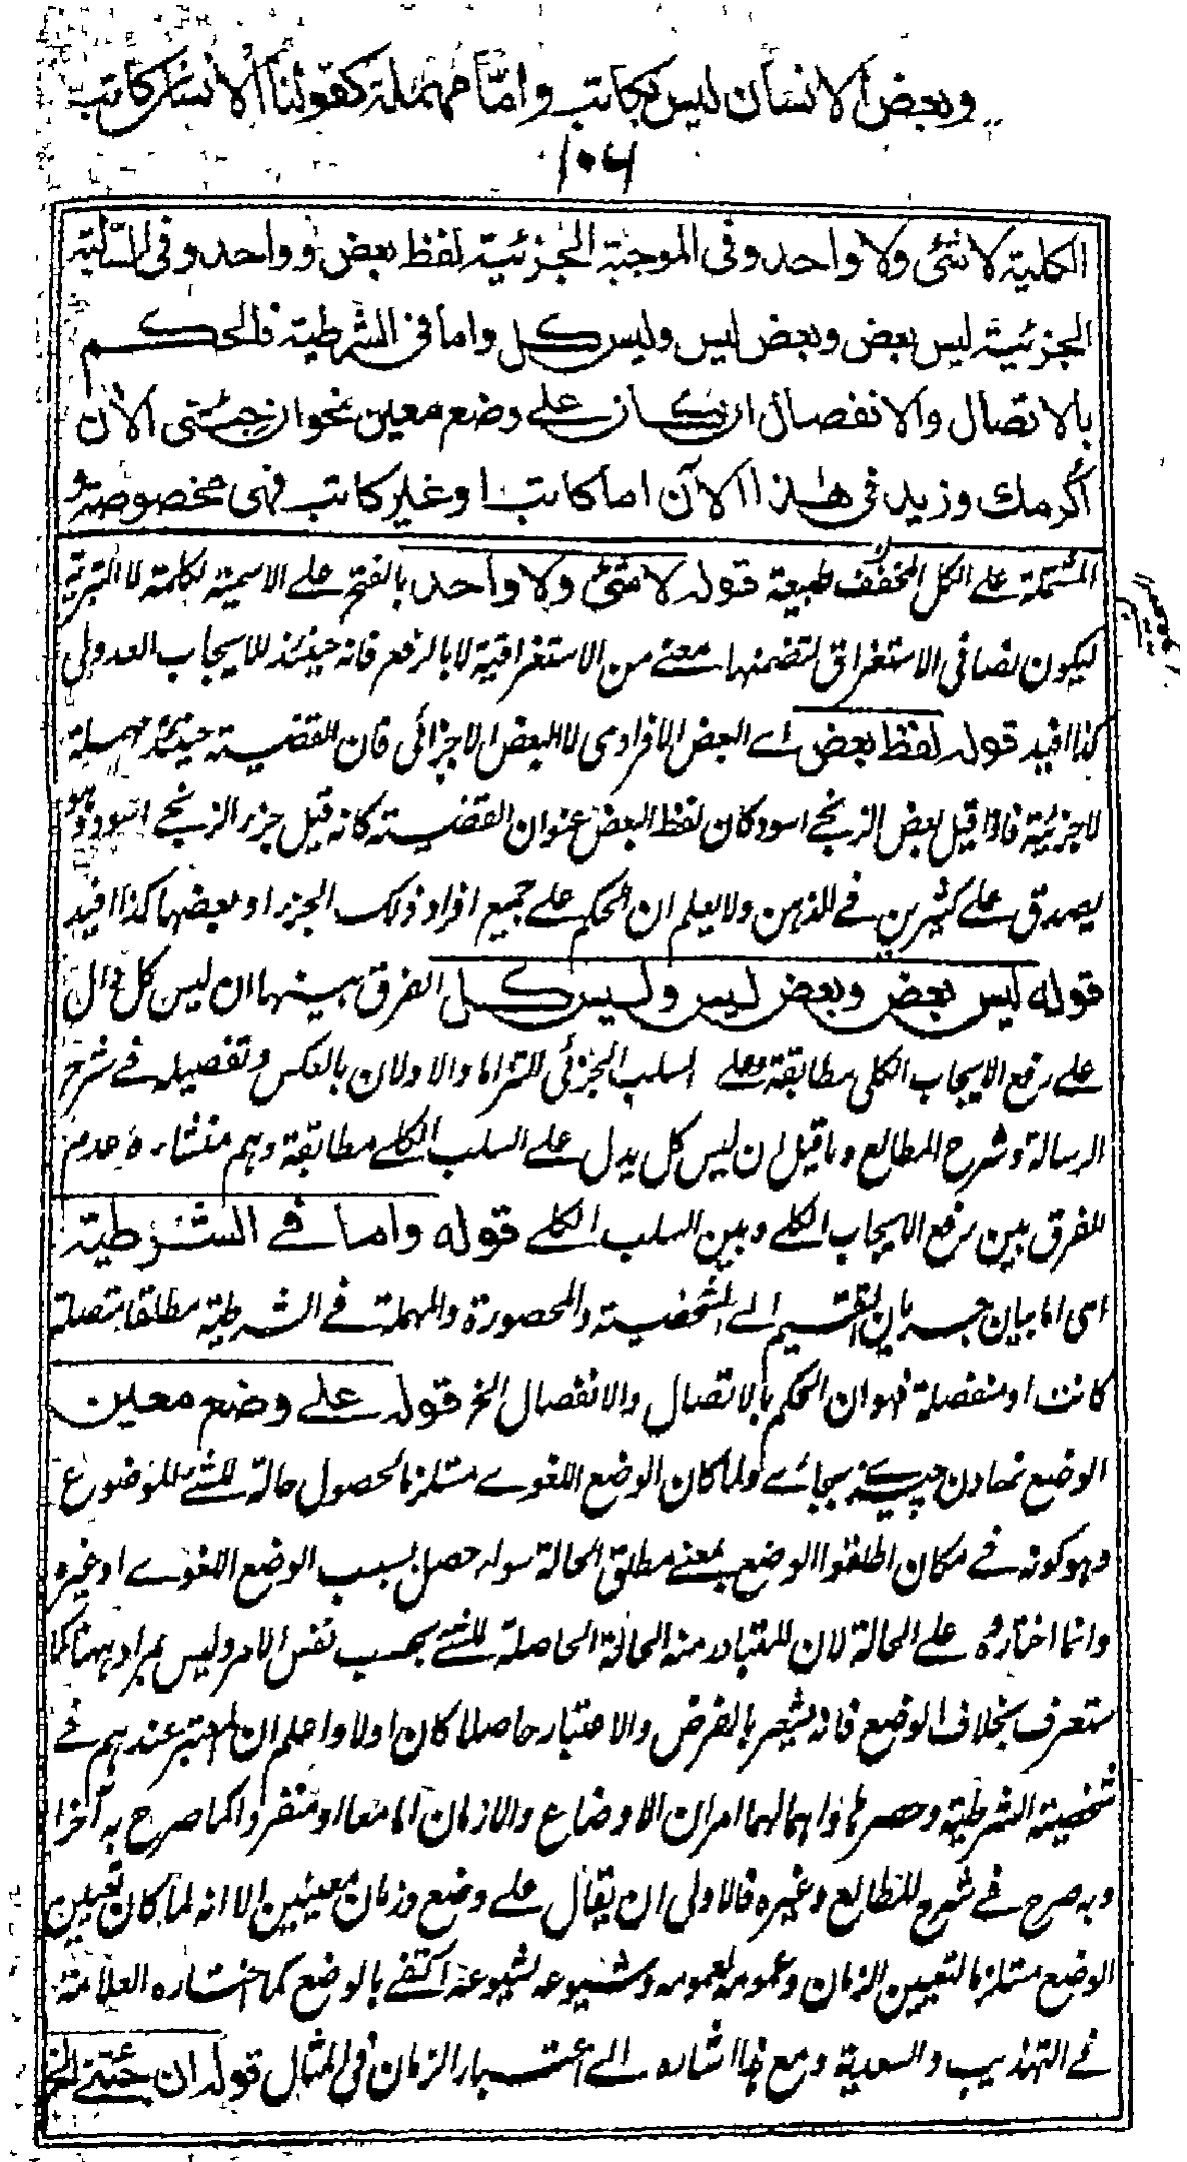 وبعض الانسان ليس بكاتب واما مهملة كقولنا الانسان كاتب
۱۰۶
الكلية لا شئ ولا واحد وفى الموجبة الجزئية لفظ بعض وواحد وفى السالبة
الجزئية ليس بعض وبعض ليس وليس كل واما فى الشرطية فالحكم
بالاتصال والانفصال ان كان على وضع معين نحو ان جئتنى الآن
اكرمك وزيد فى هذا الآن اما كاتب او غير كاتب فهى مخصوصة و
المشتملة على الكل المخفف طبيعة قوله لا شئ ولا واحد بالفتح على الاسمية لكلمة لا التبرية
ليكون نصا فى الاستغراق لتضمنها معنے من الاستغراقية لا بالرفع فانه حينئذ للايجاب العدولى
كذا افيد قوله لفظ بعض اے البعض الافرادى لا البعض الاجزائى فان القضية حينئذ مهملة
لا جزئية فاذا قيل بعض الزنجے اسود كان لفظ البعض عنوان القضية كانه قيل جزر الزنجے اسود وهو
يصدق على كثيرين فے الذهن ولا يعلم ان الحكم علے جميع افراد ذلك الجزر او بعضها كذا افيد
قوله ليس بعض وبعض ليس وليس كل الفرق بينهما ان ليس كل دال
على رفع الايجاب الكلى مطابقة وعلے السلب الجزئى التزاما والاولان بالعكس وتفصيله فے شرح
الرسالة وشرح المطالع وما قيل ان ليس كل يدل علے السلب الكلے مطابقة وهم منشاره عدم
الفرق بين رفع الايجاب الكلے وبين السلب الكلے قوله واما فے الشرطية
اى اما بيان جريان التقسيم الے الشخصية والمحصورة والمهملة فے الشرطية مطلقا متصلة
كانت او منفصلة فهو ان الحكم بالاتصال والانفصال الخ قوله علے وضع معين
الوضع نهادن چيزے بجائے ولما كان الوضع اللغوے مستلزما لحصول حالة للشے الموضوع
وهو كونه فے مكان اطلقوا الوضع بمعنے مطلق الحالة سوار حصل بسبب الوضع اللغوے او غيره
وانما اختاروه علے الحالة لان المتبادر منه الحالة الحاصلة للشے بحسب نفس الامر وليس بمراد ههنا كما
ستعرف بخلاف الوضع فانه يشعر بالفرض والاعتبار حاصلا كان اولا واعلم ان المعتبر عندهم فے
شخصية الشرطية وحصرها واهمالها امران الاوضاع والازمان اما معا او منفردا كما صرح به آخرا
وبه صرح فے شرح المطالع وغيره فالاولى ان يقال علے وضع وزمان معينين الا انه لما كان تعيين
الوضع مستلزما لتعيين الزمان وعمومه لعمومه وشيوعه لشيوعه اكتفے بالوضع كما اختاره العلامة
فے التهذيب والسعدية ومع هذا اشار الے اعتبار الزمان فى المثال قوله ان جئتنے الخ